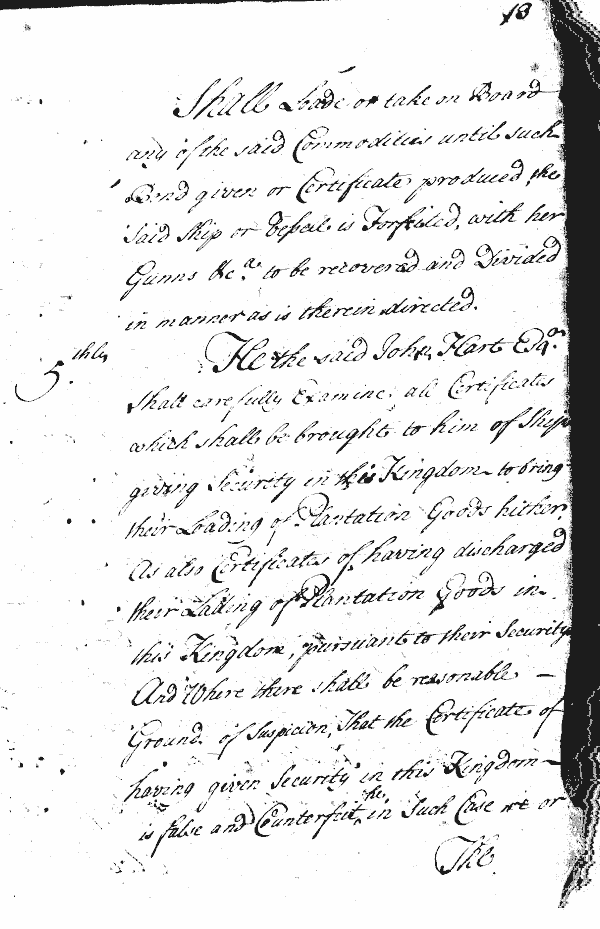 13
Shall Loade or take on Board
any of the said Commodities until such
Bond given or Certificate produced, the
Said Ship or Vessel is Forfeited, with her
Gunns &c.a to be recovered and Divided
in manner as is therein directed.
5.thly
He the said John Hart Esq.r
Shall carefully Examine all Certificates
which shall be brought to him of Ships
giving Security in this Kingdom to bring
their Loading of Plantation Goods hither,
As also Certificates of having discharged
their Lading of Plantation Goods in
this Kingdom, pursuant to their Security
And Where there shall be reasonable —
Ground of Suspicion, That the Certificate of
having given Security in this Kingdom —
the
is false and Counterfeit, in Such Case or
The